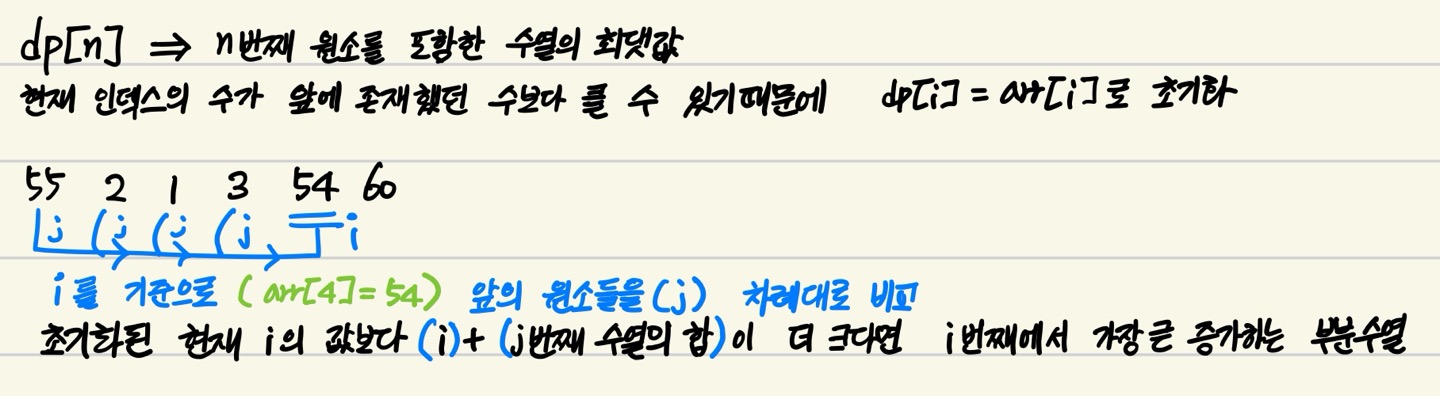 dp[n] ⇒ n번째 원소를 포함한 수열의 최댓값
현재 인덱스의 수가 앞에 존재했던 수보다 클 수 있기때문에 dp[i] = arr[i]로 초기화
55 2 1 3 54 60
j j j j i
i를 기준으로 (arr[4]=54) 앞의 원소들을(j) 차례대로 비교
초기화된 현재 i의 값보다 (i)+(j번째 수열의 합)이 더 크다면 i번째에서 가장 큰 증가하는 부분수열